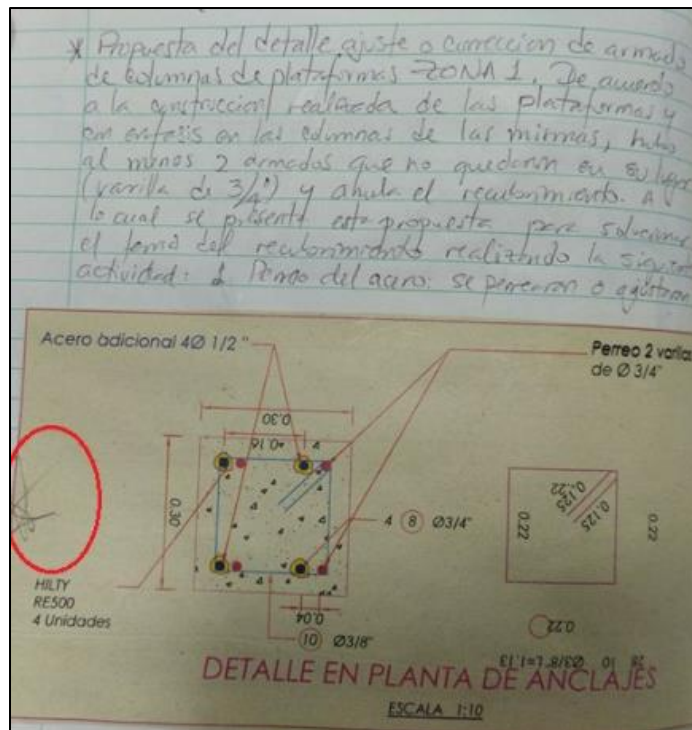 * Propuesta del detalle ajuste o correccion de armado
de columnas de plataformas ZONA 1. De acuerdo
a la construccion realizada de las plataformas y
en enfasis en las columnas de las mismas, hubo
al menos 2 armados que no quedaron en su lugar
(varilla de 3/4") y ahula el recubrimiento. A
lo cual se presenta esta propuesta para solucionar
el tema del recubrimiento realizando la siguiente
actividad: 1. Perreo del acero: se perrearon o ajustaron
Acero adicional 4Ø 1/2 "
Perreo 2 varillas
de Ø 3/4"
0.30
0.16
0.30
4 8 Ø3/4"
0.22
0.22
0.125
0.125
0.22
HILTY
RE500
4 Unidades
0.04
10 Ø3/8"
0.22
10 Ø3/8" L=1.13
DETALLE EN PLANTA DE ANCLAJES
ESCALA 1:10